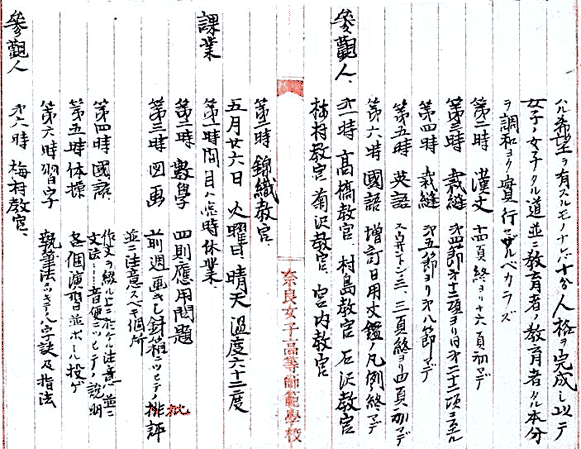 ル希望ヲ有スルモノナレバ十分人格ヲ完成シ以テ
女子ノ女子タル道並ニ教育者ノ教育者タル本分
ヲ調和シテ實行セザルベカラズ
第二時 漢文 十四頁終ヨリ十六頁初マデ
第三時 裁縫 第四節第十二項ヨリ同第二十二項ニ至ル
第四時 裁縫 第五節ヨリ第八節マデ
第五時 英語 三、三頁終ヨリ四頁初マデ
第六時 國語 増訂日用文鑑ノ凡例終マデ
參觀人、第一時 高橋教官、村島教官 石沢教官
梅村教官 菊沢教官、宮内教官
第二時 錦織教官
奈良女子高等師範學校
五月廿六日 火曜日 晴天 温度六十二度
課業 第一時間目ハ臨時休業
第二時 數學 四則應用問題
第三時 図画 前週画きし針箱ニツキテノ批評
並ニ注意スベキ個所
第四時 國語 作文ヲ綴ルニ於ケル注意並ニ
文法ノ音便ニツヒテノ説明
第五時 体操 各個演習並ボール投ゲ
第六時 習字 執筆法ツキテノ訣及指法
參觀人 第六時 梅村教官、